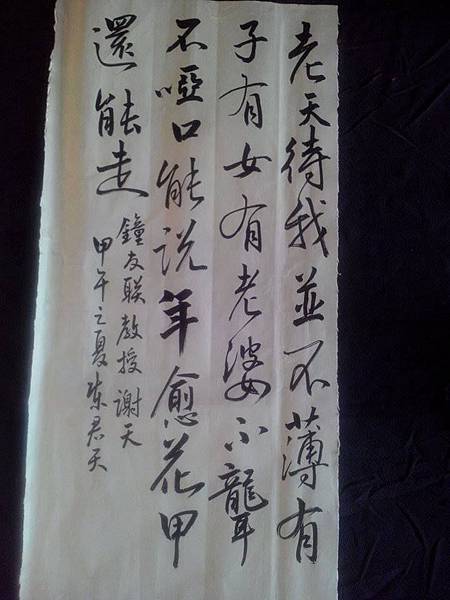 老天待我並不薄有
子有女有老婆不聾
不啞口能说年愈花甲
還能走
鐘友联教授谢天
甲午之夏朱君天